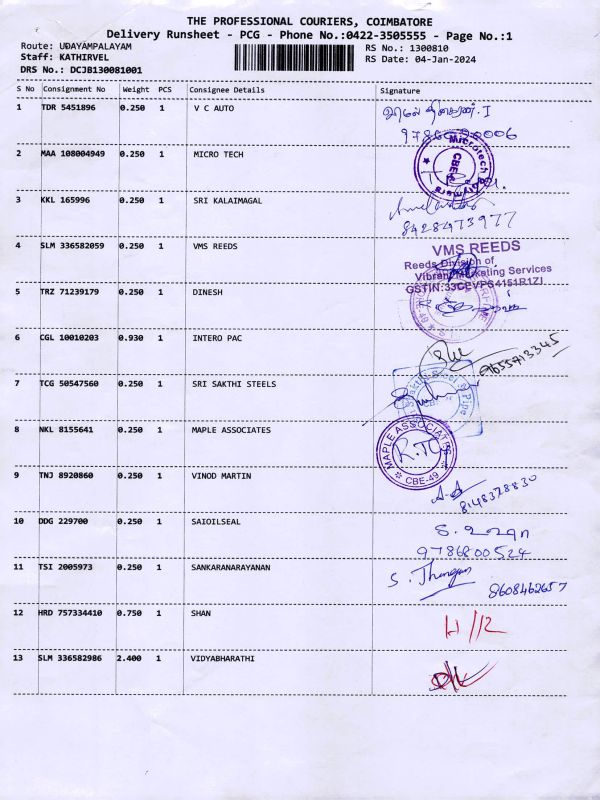 THE PROFESSIONAL COURIERS, COIMBATORE
Delivery Runsheet - PCG - Phone No.:0422-3505555 - Page No.:1
Route: UDAYAMPALAYAM RS No.: 1300810
Staff: KATHIRVEL RS Date: 04-Jan-2024
DRS No.: DCJB130081001
S No Consignment No Weight PCS Consignee Details Signature
1 TDR 5451896 0.250 1 V C AUTO
2 MAA 108004949 0.250 1 MICRO TECH
Microtech Polymers
CBE
3 KKL 165996 0.250 1 SRI KALAIMAGAL
8428473977
4 SLM 336582059 0.250 1 VMS REEDS
VMS REEDS
Reeds Division of
Vibrant Marketing Services
5 TRZ 71239179 0.250 1 DINESH
6 CGL 10010203 0.930 1 INTERO PAC
9655713345
7 TCG 50547560 0.250 1 SRI SAKTHI STEELS
8 NKL 8155641 0.250 1 MAPLE ASSOCIATES
MAPLE ASSOCIATES
CBE-49
9 TNJ 8920860 0.250 1 VINOD MARTIN
8148378830
10 DDG 229700 0.250 1 SAIOILSEAL
9786800524
11 TSI 2005973 0.250 1 SANKARANARAYANAN
8608462657
12 HRD 757334410 0.750 1 SHAN
13 SLM 336582986 2.400 1 VIDYABHARATHI